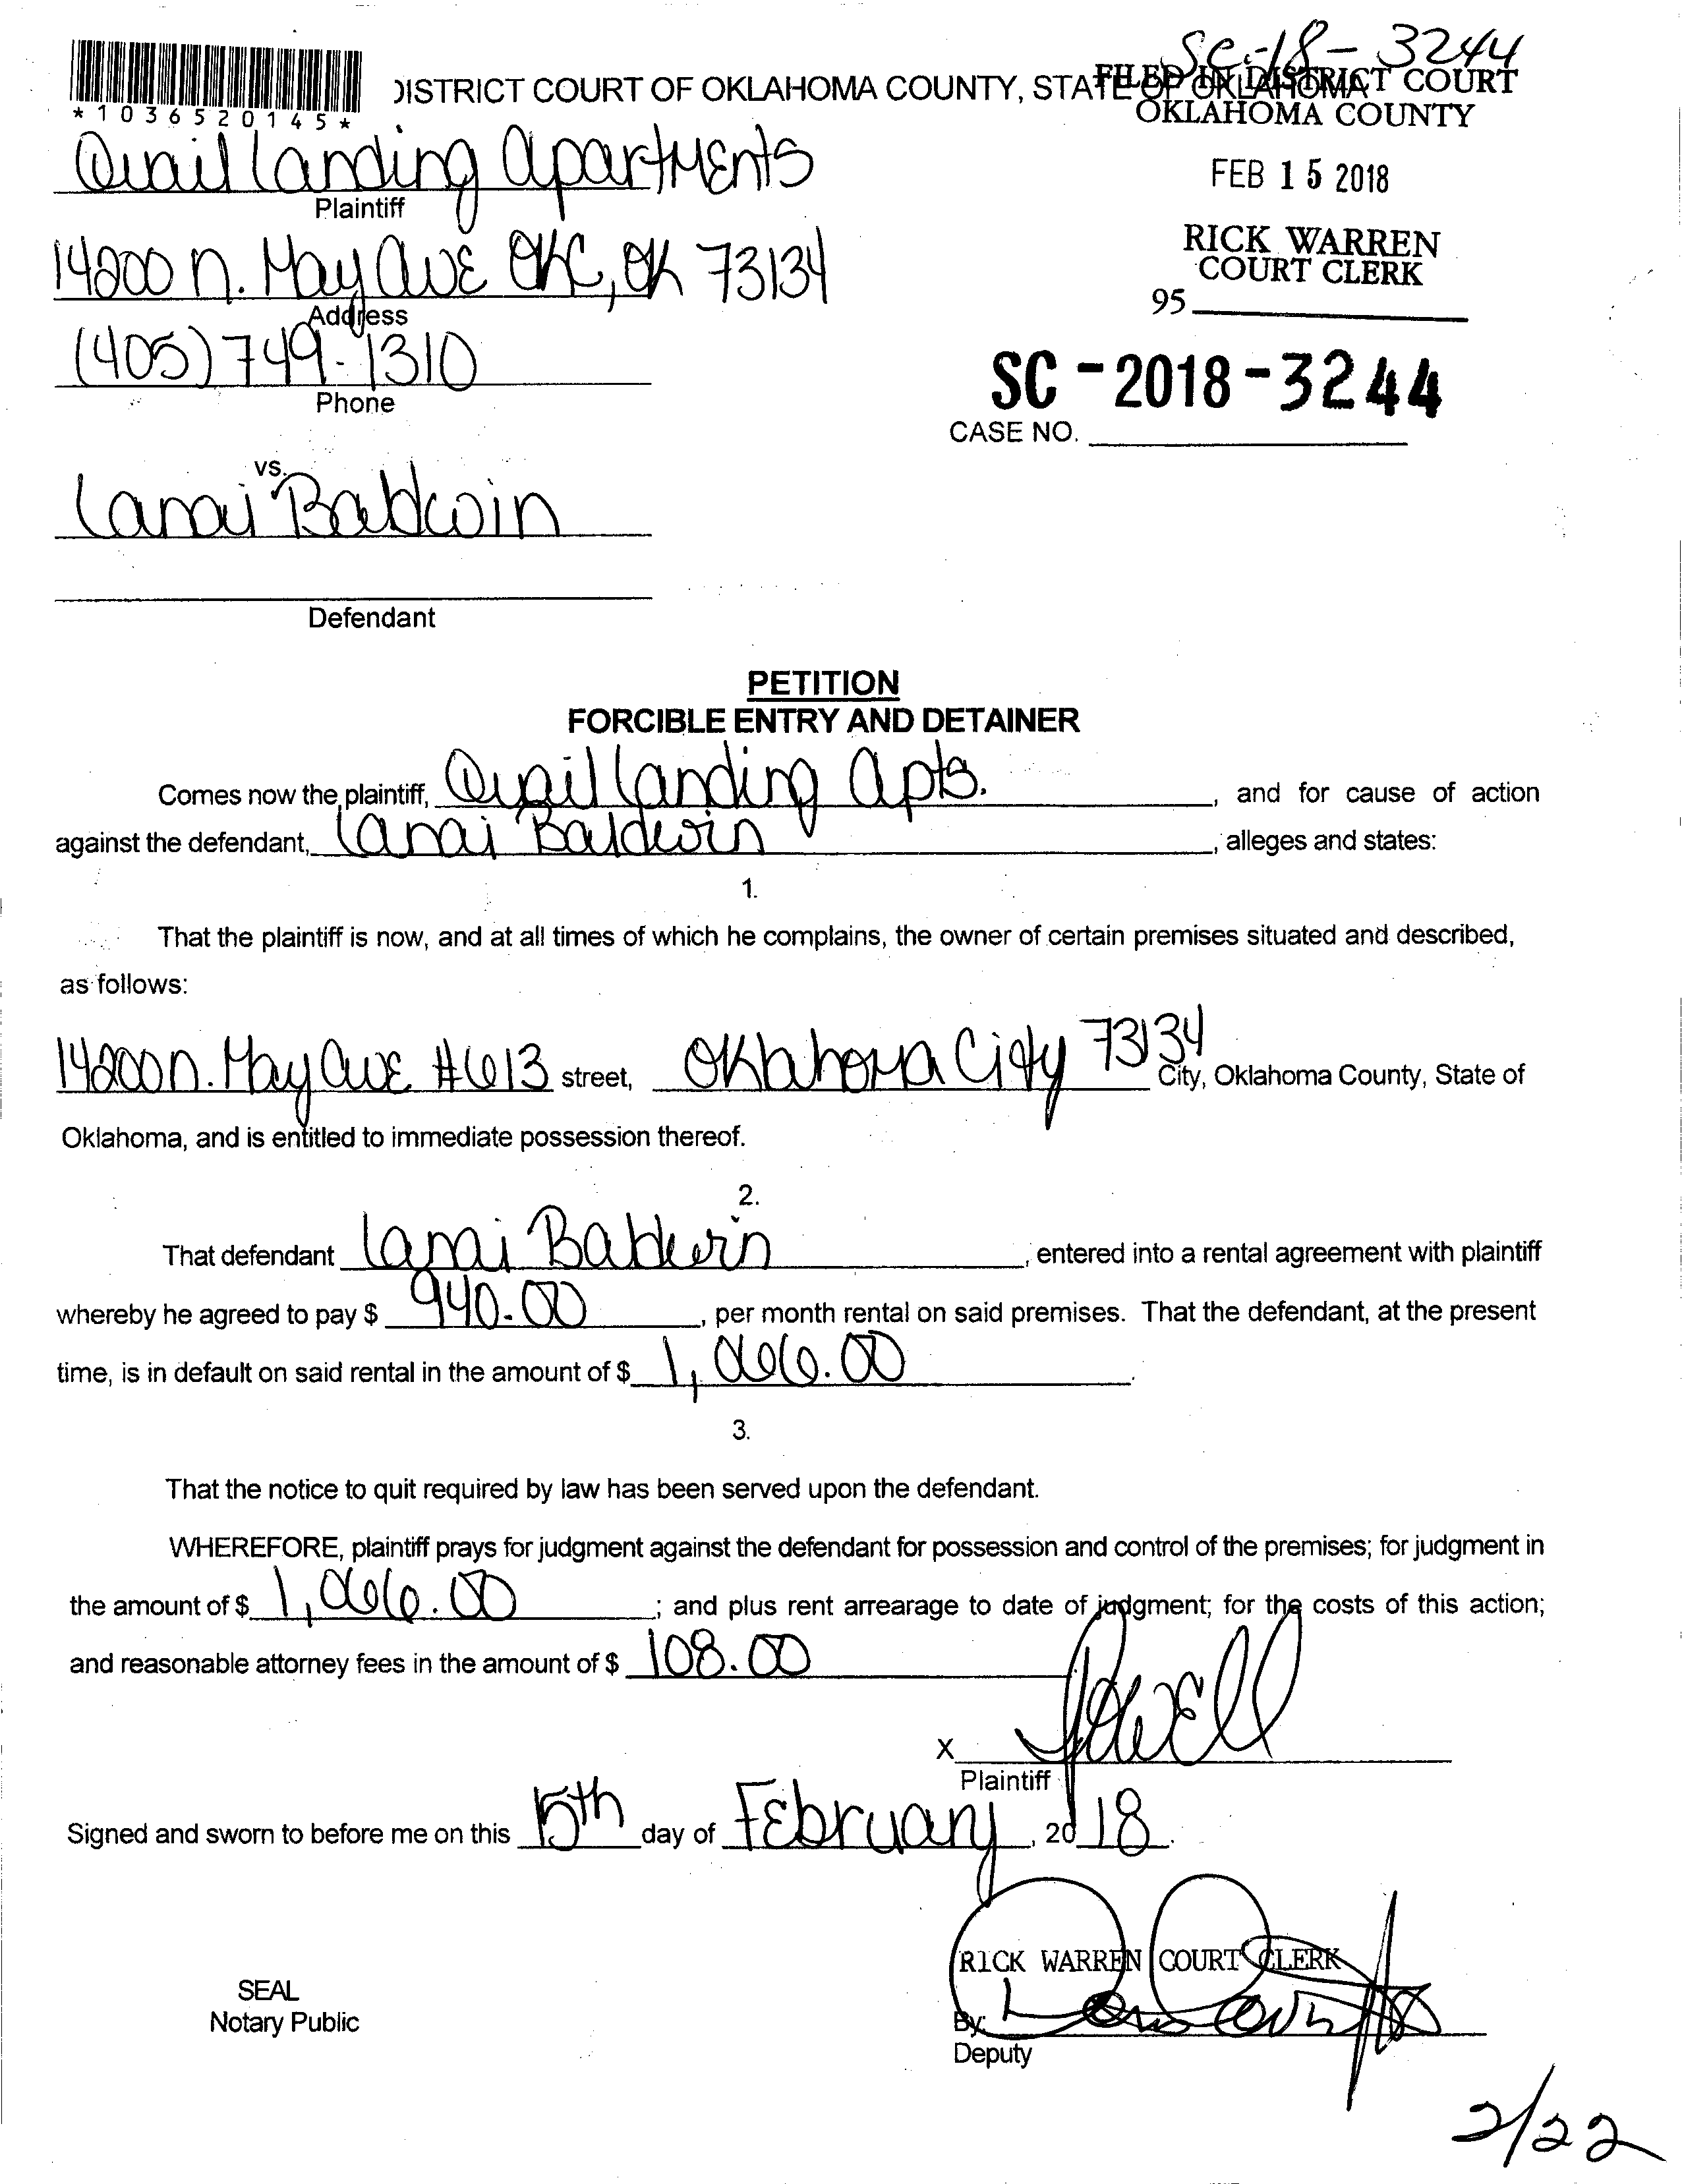 SC-18-3244
DISTRICT COURT OF OKLAHOMA COUNTY, STATE OF OKLAHOMA
FILED IN DISTRICT COURT
OKLAHOMA COUNTY
*1036520145*
FEB 15 2018
RICK WARREN
COURT CLERK
95
Quail Landing Apartments
Plaintiff
14200 N. May Ave OKC, OK 73134
Address
(405) 749-1310
Phone
SC-2018-3244
CASE NO.
vs.
Lanai Baldwin
Defendant
PETITION
FORCIBLE ENTRY AND DETAINER
Comes now the plaintiff, Quail Landing Apts. , and for cause of action
against the defendant, Lanai Baldwin , alleges and states:
1.
That the plaintiff is now, and at all times of which he complains, the owner of certain premises situated and described,
as follows:
14200 N. May Ave #613 street, Oklahoma City 73134 City, Oklahoma County, State of
Oklahoma, and is entitled to immediate possession thereof.
2.
That defendant Lanai Baldwin , entered into a rental agreement with plaintiff
whereby he agreed to pay $ 940.00 , per month rental on said premises. That the defendant, at the present
time, is in default on said rental in the amount of $ 1,066.00 .
3.
That the notice to quit required by law has been served upon the defendant.
WHEREFORE, plaintiff prays for judgment against the defendant for possession and control of the premises; for judgment in
the amount of $ 1,066.00 ; and plus rent arrearage to date of judgment; for the costs of this action;
and reasonable attorney fees in the amount of $ 108.00
X
Plaintiff
Signed and sworn to before me on this 15th day of February , 20 18 .
RICK WARREN COURT CLERK
SEAL
Notary Public
By:
Deputy
2/22